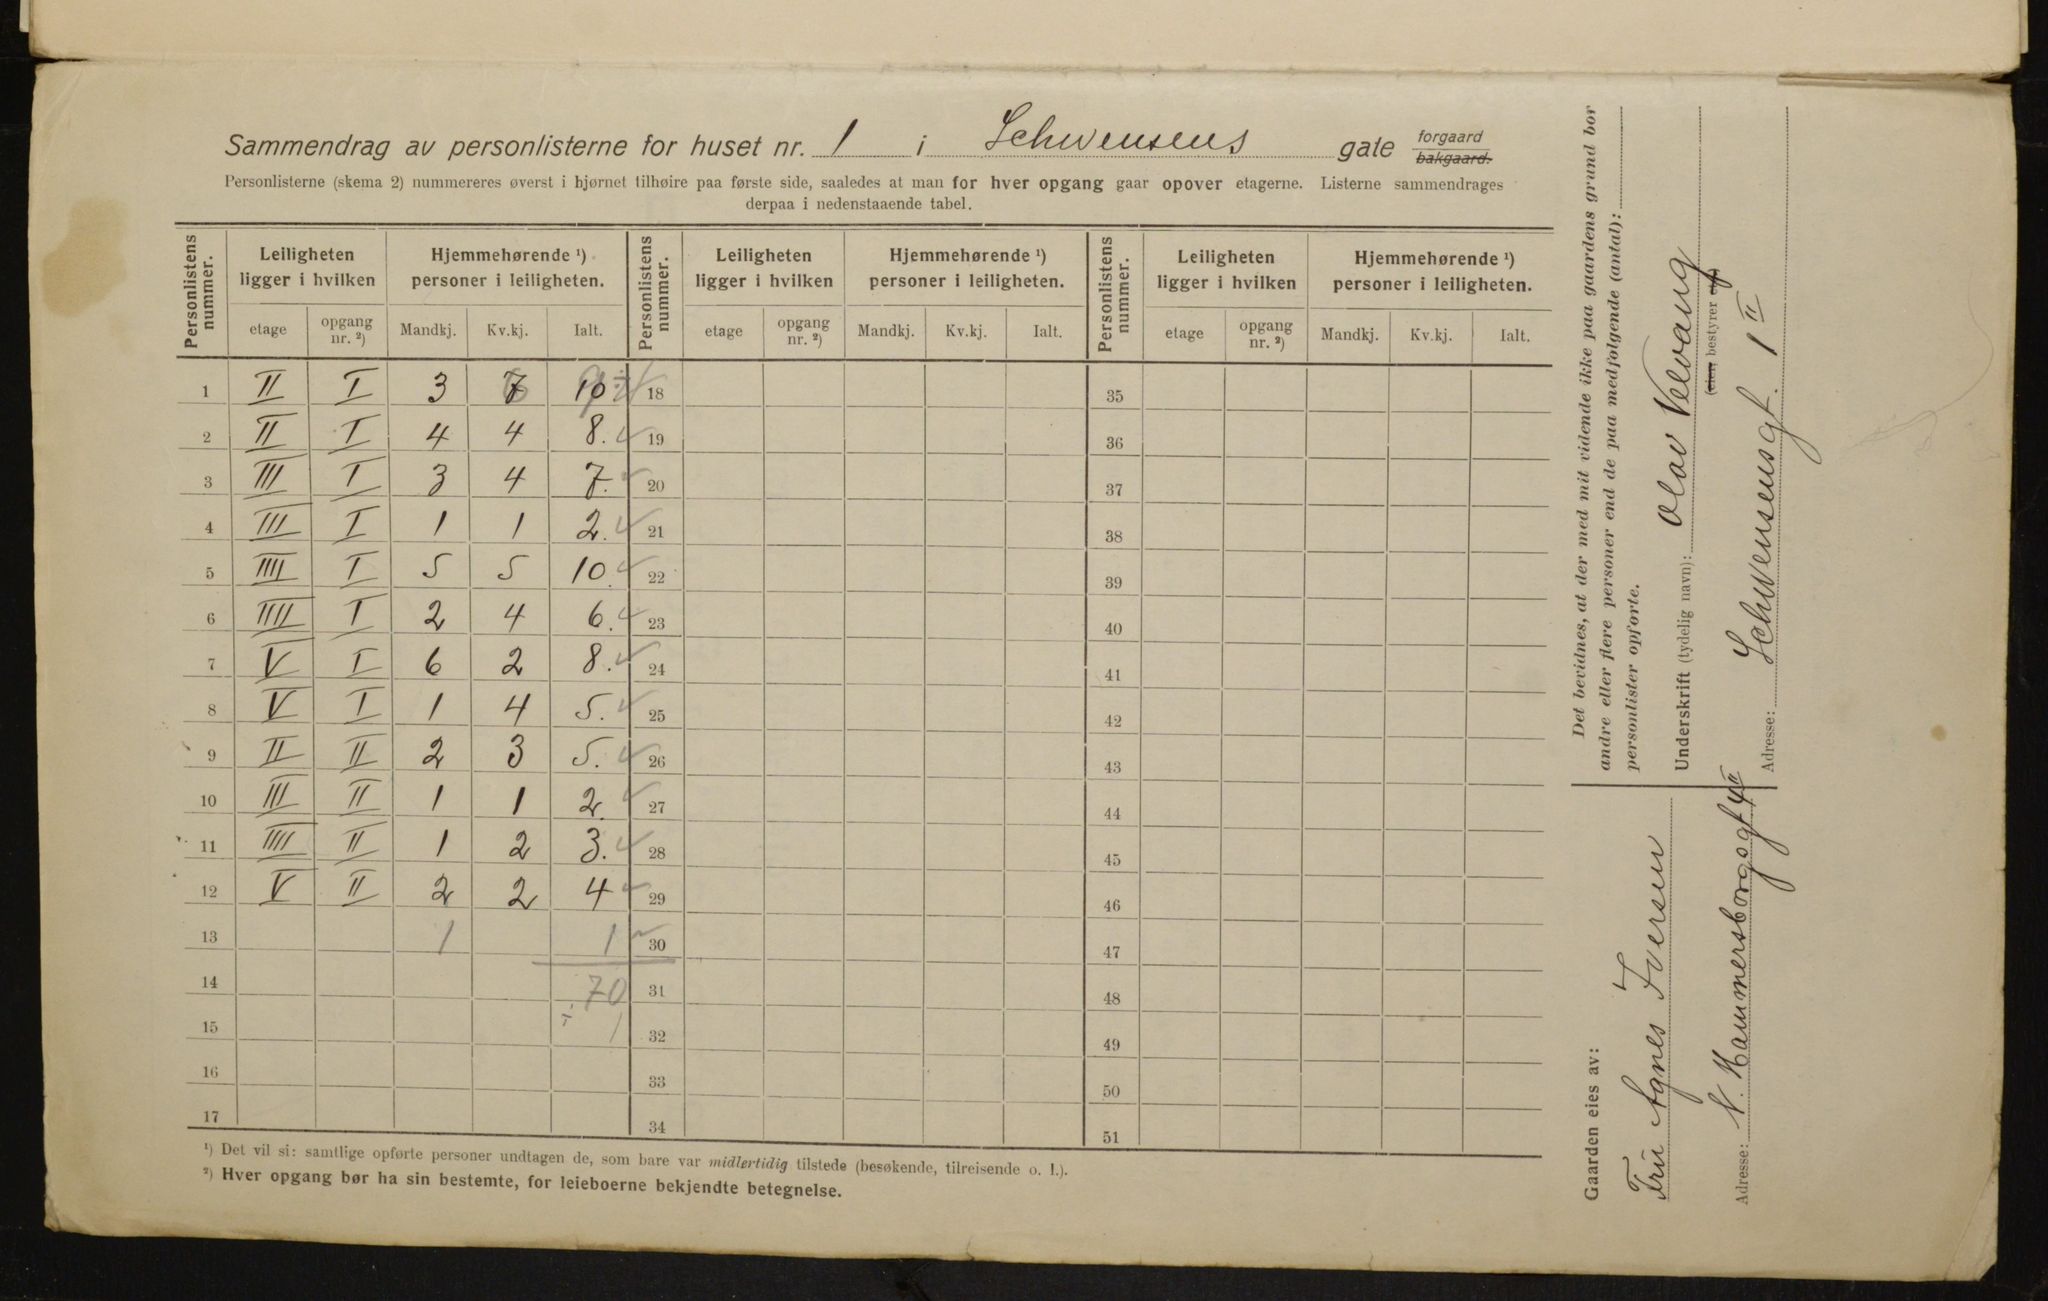 Sammendrag av personlisterne for huset nr. 1 i Schwensens gate forgaard bakgaard.
Personlisterne (skema 2) nummereres øverst i hjørnet tilhøire paa første side, saaledes at man for hver opgang gaar opover etagerne. Listerne sammendrages
derpaa i nedenstaaende tabel.
Personlistens nummer. Leiligheten ligger i hvilken Hjemmehørende ¹) personer i leiligheten. Personlistens nummer. Leiligheten ligger i hvilken Hjemmehørende ¹) personer i leiligheten. Personlistens nummer. Leiligheten ligger i hvilken Hjemmehørende ¹) personer i leiligheten.
etage opgang nr. ²) Mandkj. Kv.kj. Ialt. etage opgang nr. ²) Mandkj. Kv.kj. Ialt. etage opgang nr. ²) Mandkj. Kv.kj. Ialt.
1 II I 3 7 10 18 35
2 II I 4 4 8. 19 36
3 III I 3 4 7. 20 37
4 III I 1 1 2. 21 38
5 IIII I 5 5 10. 22 39
6 IIII I 2 4 6. 23 40
7 V I 6 2 8. 24 41
8 V I 1 4 5. 25 42
9 II II 2 3 5. 26 43
10 III II 1 1 2. 27 44
11 IIII II 1 2 3. 28 45
12 V II 2 2 4 29 46
13 1 1 30 47
14 70 31 48
15 ÷ 1 32 49
16 33 50
17 34 51
¹) Det vil si: samtlige opførte personer undtagen de, som bare var midlertidig tilstede (besøkende, tilreisende o. l.).
²) Hver opgang bør ha sin bestemte, for leieboerne bekjendte betegnelse.
Det bevidnes, at der med mit vidende ikke paa gaardens grund bor
andre eller flere personer end de paa medfølgende (antal):
personlister opførte.
Underskrift (tydelig navn): Olav Velvang
(eier, bestyrer etc.)
Adresse: Schwensensgt. 1 II
Gaarden eies av:
Fru Agnes Iversen
Adresse: N. Hammersborgsgt 4 II